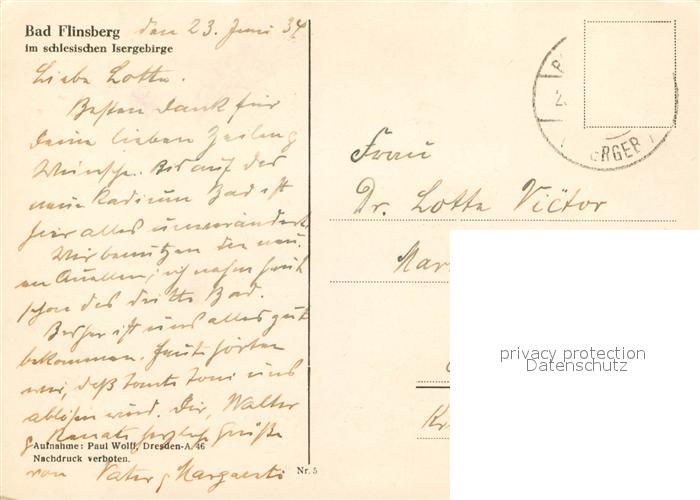 Bad Flinsberg den 23. Juni 34
im schlesischen Isergebirge
Liebe Lotte.
Besten Dank für
Deine lieben Zeilen
Wünsche. Bis auf das
neue Radium Bad ist
hier alles unverändert.
Wir benutzen die neu-
en Quellen, ich nahm heut
schon das dritte Bad.
Bisher ist uns alles gut
bekommen. Heute hörten
wir, daß Tante Toni uns
ablösen wird. Dir, Walter
Renate herzliche Grüße
Aufnahme: Paul Wolff, Dresden-A. 46
Nachdruck verboten.
von Vater
Nr. 5
Frau
Dr. Lotte Victor
Mar
Kr
ERGEB
privacy protection
Datenschutz